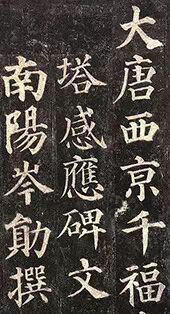 大唐西京千福
塔感應碑文
南陽岑勛撰